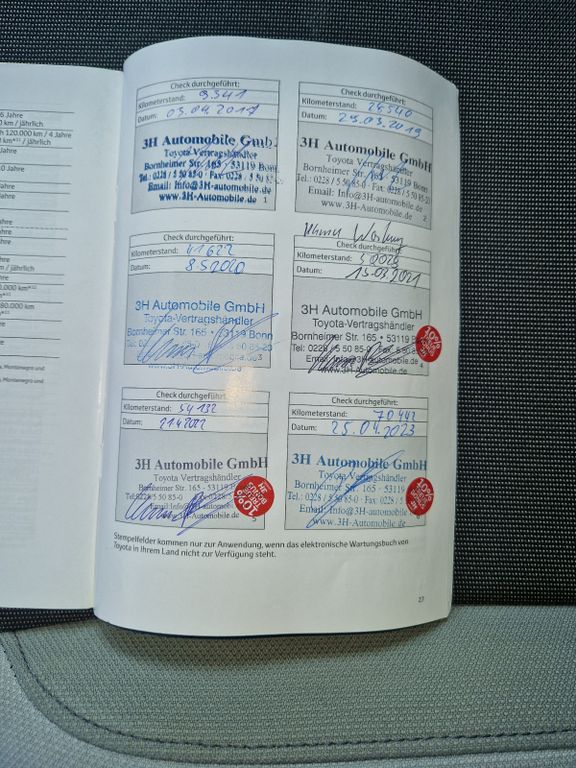 6 Jahre
km / jährlich
h 120.000 km / 4 Jahre
Jahre
Check durchgeführt:
Kilometerstand: 9.341
Datum: 03.04.2017
3H Automobile GmbH
Toyota-Vertragshändler
Bornheimer Str. 165 · 53119 Bonn
Tel.: 0228 / 5 50 85-0 · Fax: 0228 / 5 50 85
Email: Info@3H-automobile.de
www.3H-Automobile.de
1
Check durchgeführt:
Kilometerstand: 25.540
Datum: 29.03.2019
3H Automobile GmbH
Toyota Vertragshändler
Bornheimer Str. 165 · 53119 Bonn
Tel.: 0228 / 5 50 85-0 · Fax: 0228 / 5 50 85
Email: Info@3H-automobile.de
www.3H-Automobile.de
2
Check durchgeführt:
Kilometerstand: 41622
Datum: 8.5.2020
3H Automobile GmbH
Toyota-Vertragshändler
Bornheimer Str. 165 · 53119 Bonn
3
Check durchgeführt:
Kilometerstand:
Datum: 15.03.2021
3H Automobile GmbH
Toyota-Vertragshändler
Bornheimer Str. 165 · 53119 Bonn
Tel: 0228 / 5 50 85-0 · Fax 0228 / 5 50 85
Email: Info@3H-automobile.de
www.3H-Automobile.de
10%
4
Check durchgeführt:
Kilometerstand: 54 132
Datum: 21.4.2022
3H Automobile GmbH
Toyota Vertragshändler
Bornheimer Str. 165 · 53119
Tel.: 0228 / 5 50 85-0
Email: Info@3H-automobile
www.3H-Automobile.de
10%
5
Check durchgeführt:
Kilometerstand: 70.442
Datum: 25.04.2023
3H Automobile GmbH
Toyota Vertragshändler
Bornheimer Str. 165 · 53119
Tel.: 0228 / 5 50 85-0 · Fax: 0228 / 5 50 85
Email: Info@3H-automobile.de
www.3H-Automobile.de
10%
Stempelfelder kommen nur zur Anwendung, wenn das elektronische Wartungsbuch von
Toyota in Ihrem Land nicht zur Verfügung steht.
27